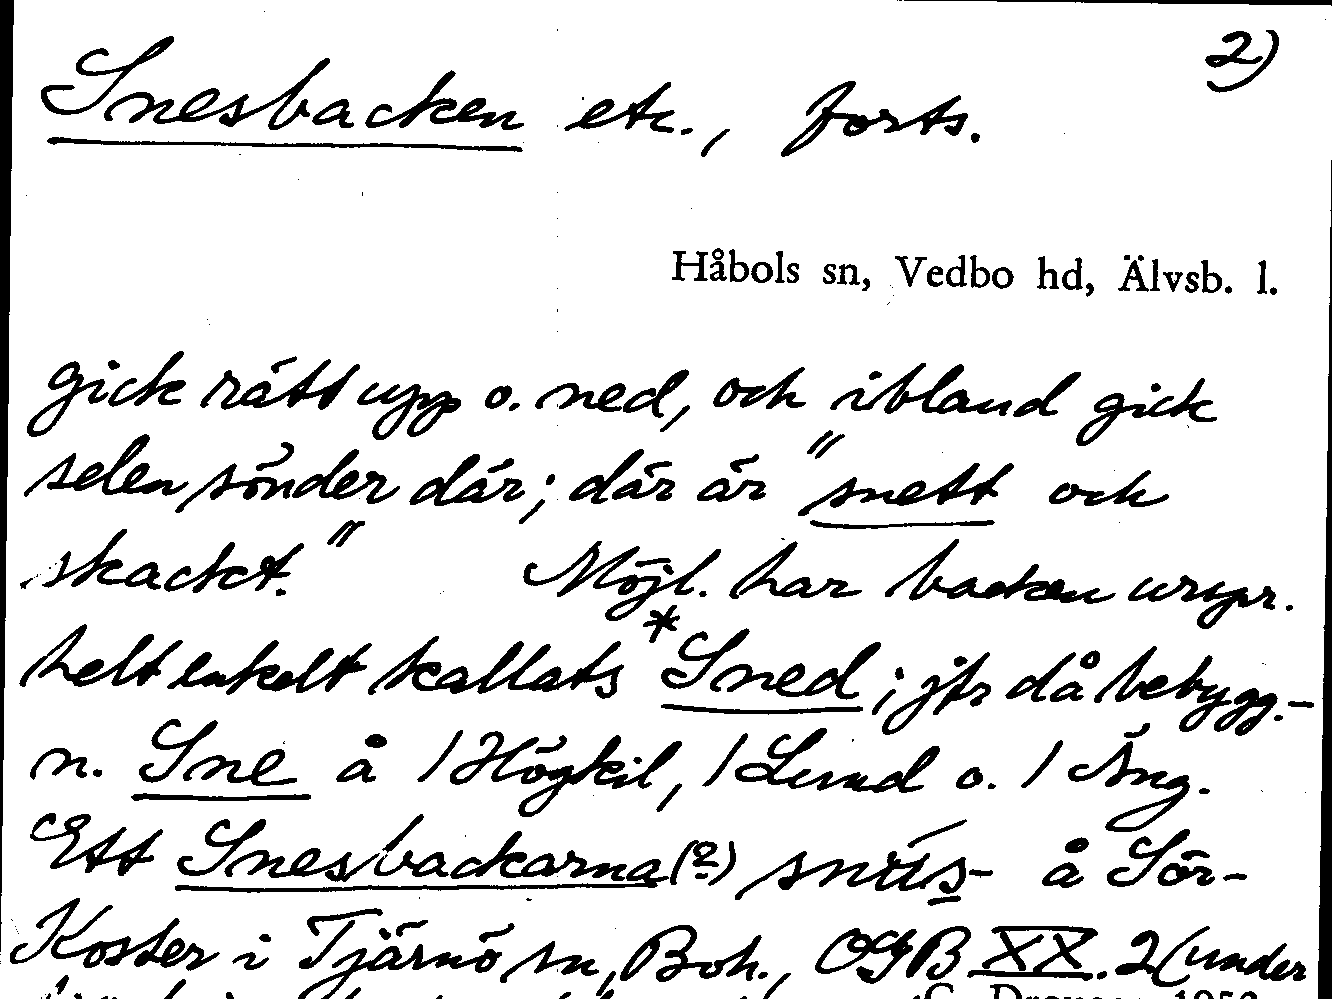 2)
Snesbacken etc., forts.
Håbols sn, Vedbo hd, Älvsb. l.
gick rätt upp o. ned, och ibland gick
selen sönder där; där är "snett och
skackt." Möjl. har backen urspr.
helt enkelt kallats *Sned; jfr då bebygg.-
n. Sne å /Högkil, /Lund o. / Äng.
Ett Snesbackarna(?) å Sör-
Koster i Tjärnö sn, Boh., OGB XX. 2 (under